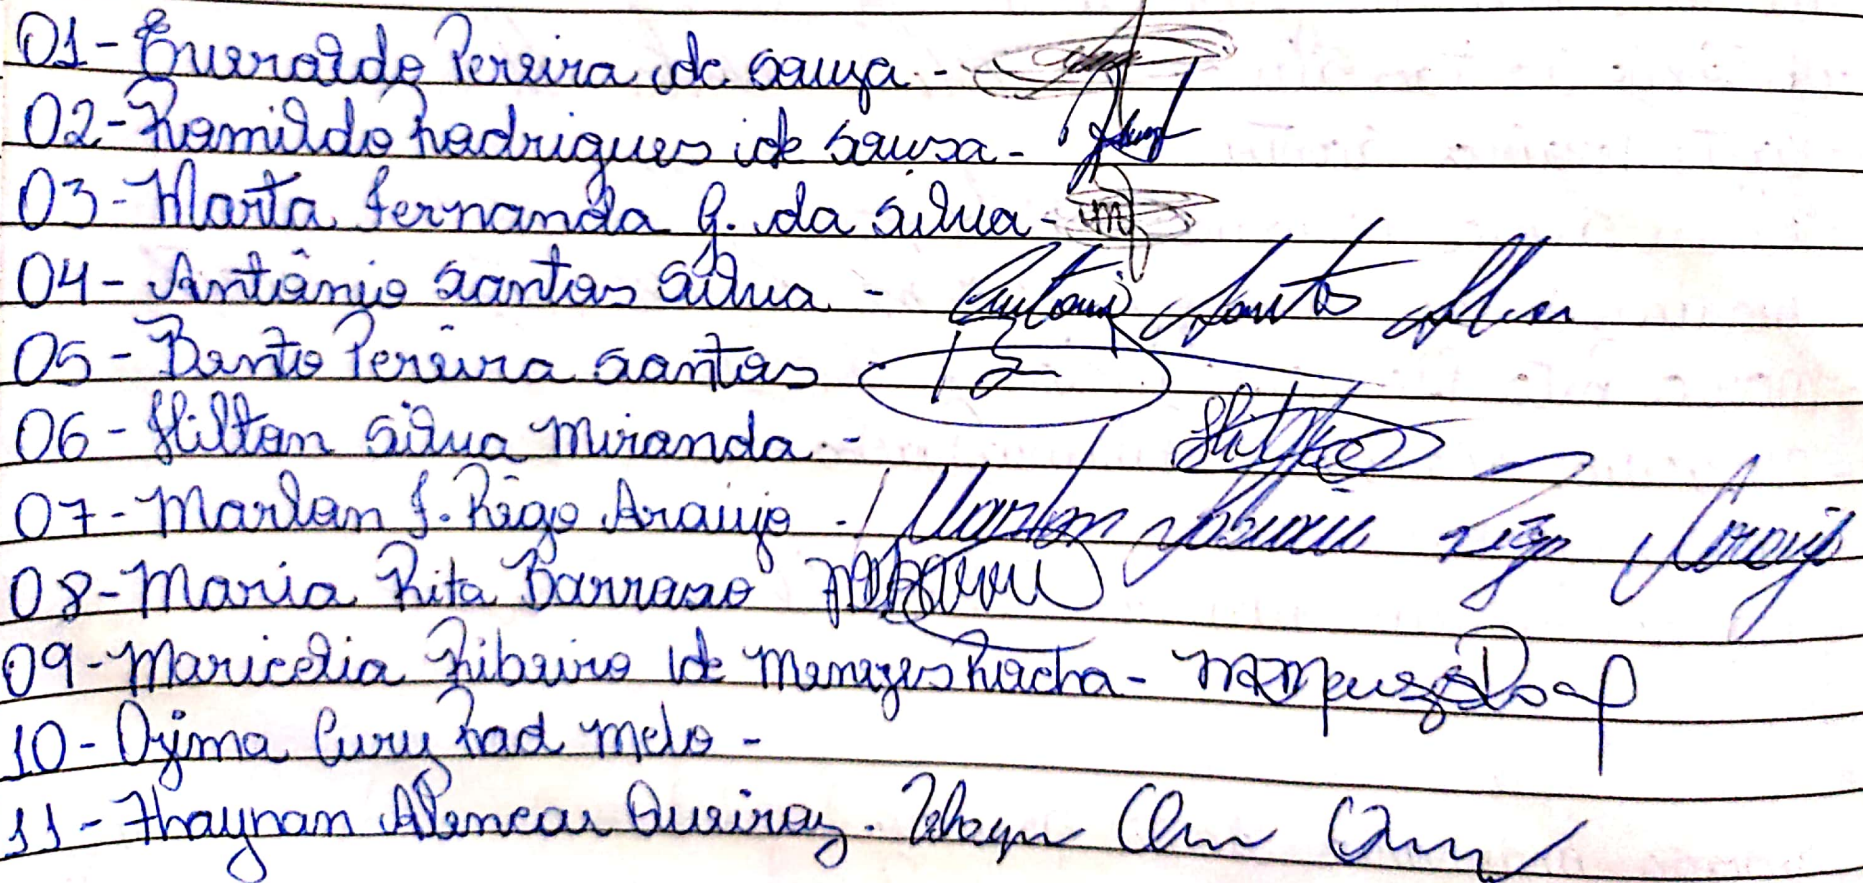 01- Everaldo Pereira de Souza -
02- Romildo Rodrigues de Sousa -
03- Marta Fernanda G. da Silva - m
04- Antônio Santos Silva - Antonio Santos Silva
05- Bento Pereira Santos
06- Hilton Silva Miranda -
07- Marlon J. Rêgo Araujo - Marlon Rêgo Araujo
08- Maria Rita Barroso
09- Maricelia Ribeiro de Menezes Rocha -
10- Ozima Cury Rad Melo -
11- Thaynan Alencar Queiroz -